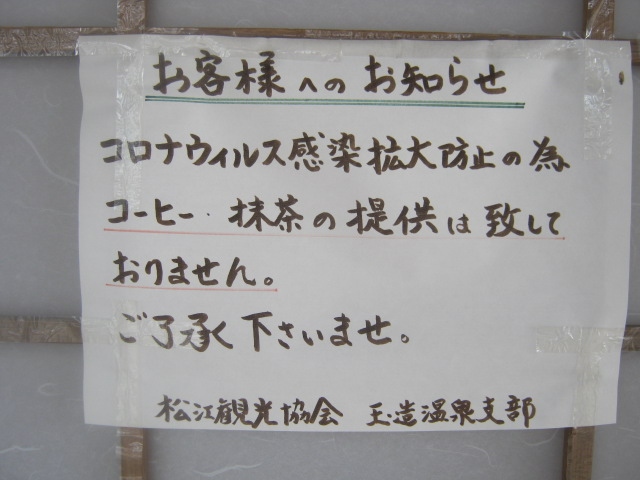 お客様へのお知らせ
コロナウィルス感染拡大防止の為
コーヒー・抹茶の提供は致して
おりません。
ご了承下さいませ。
松江観光協会 玉造温泉支部